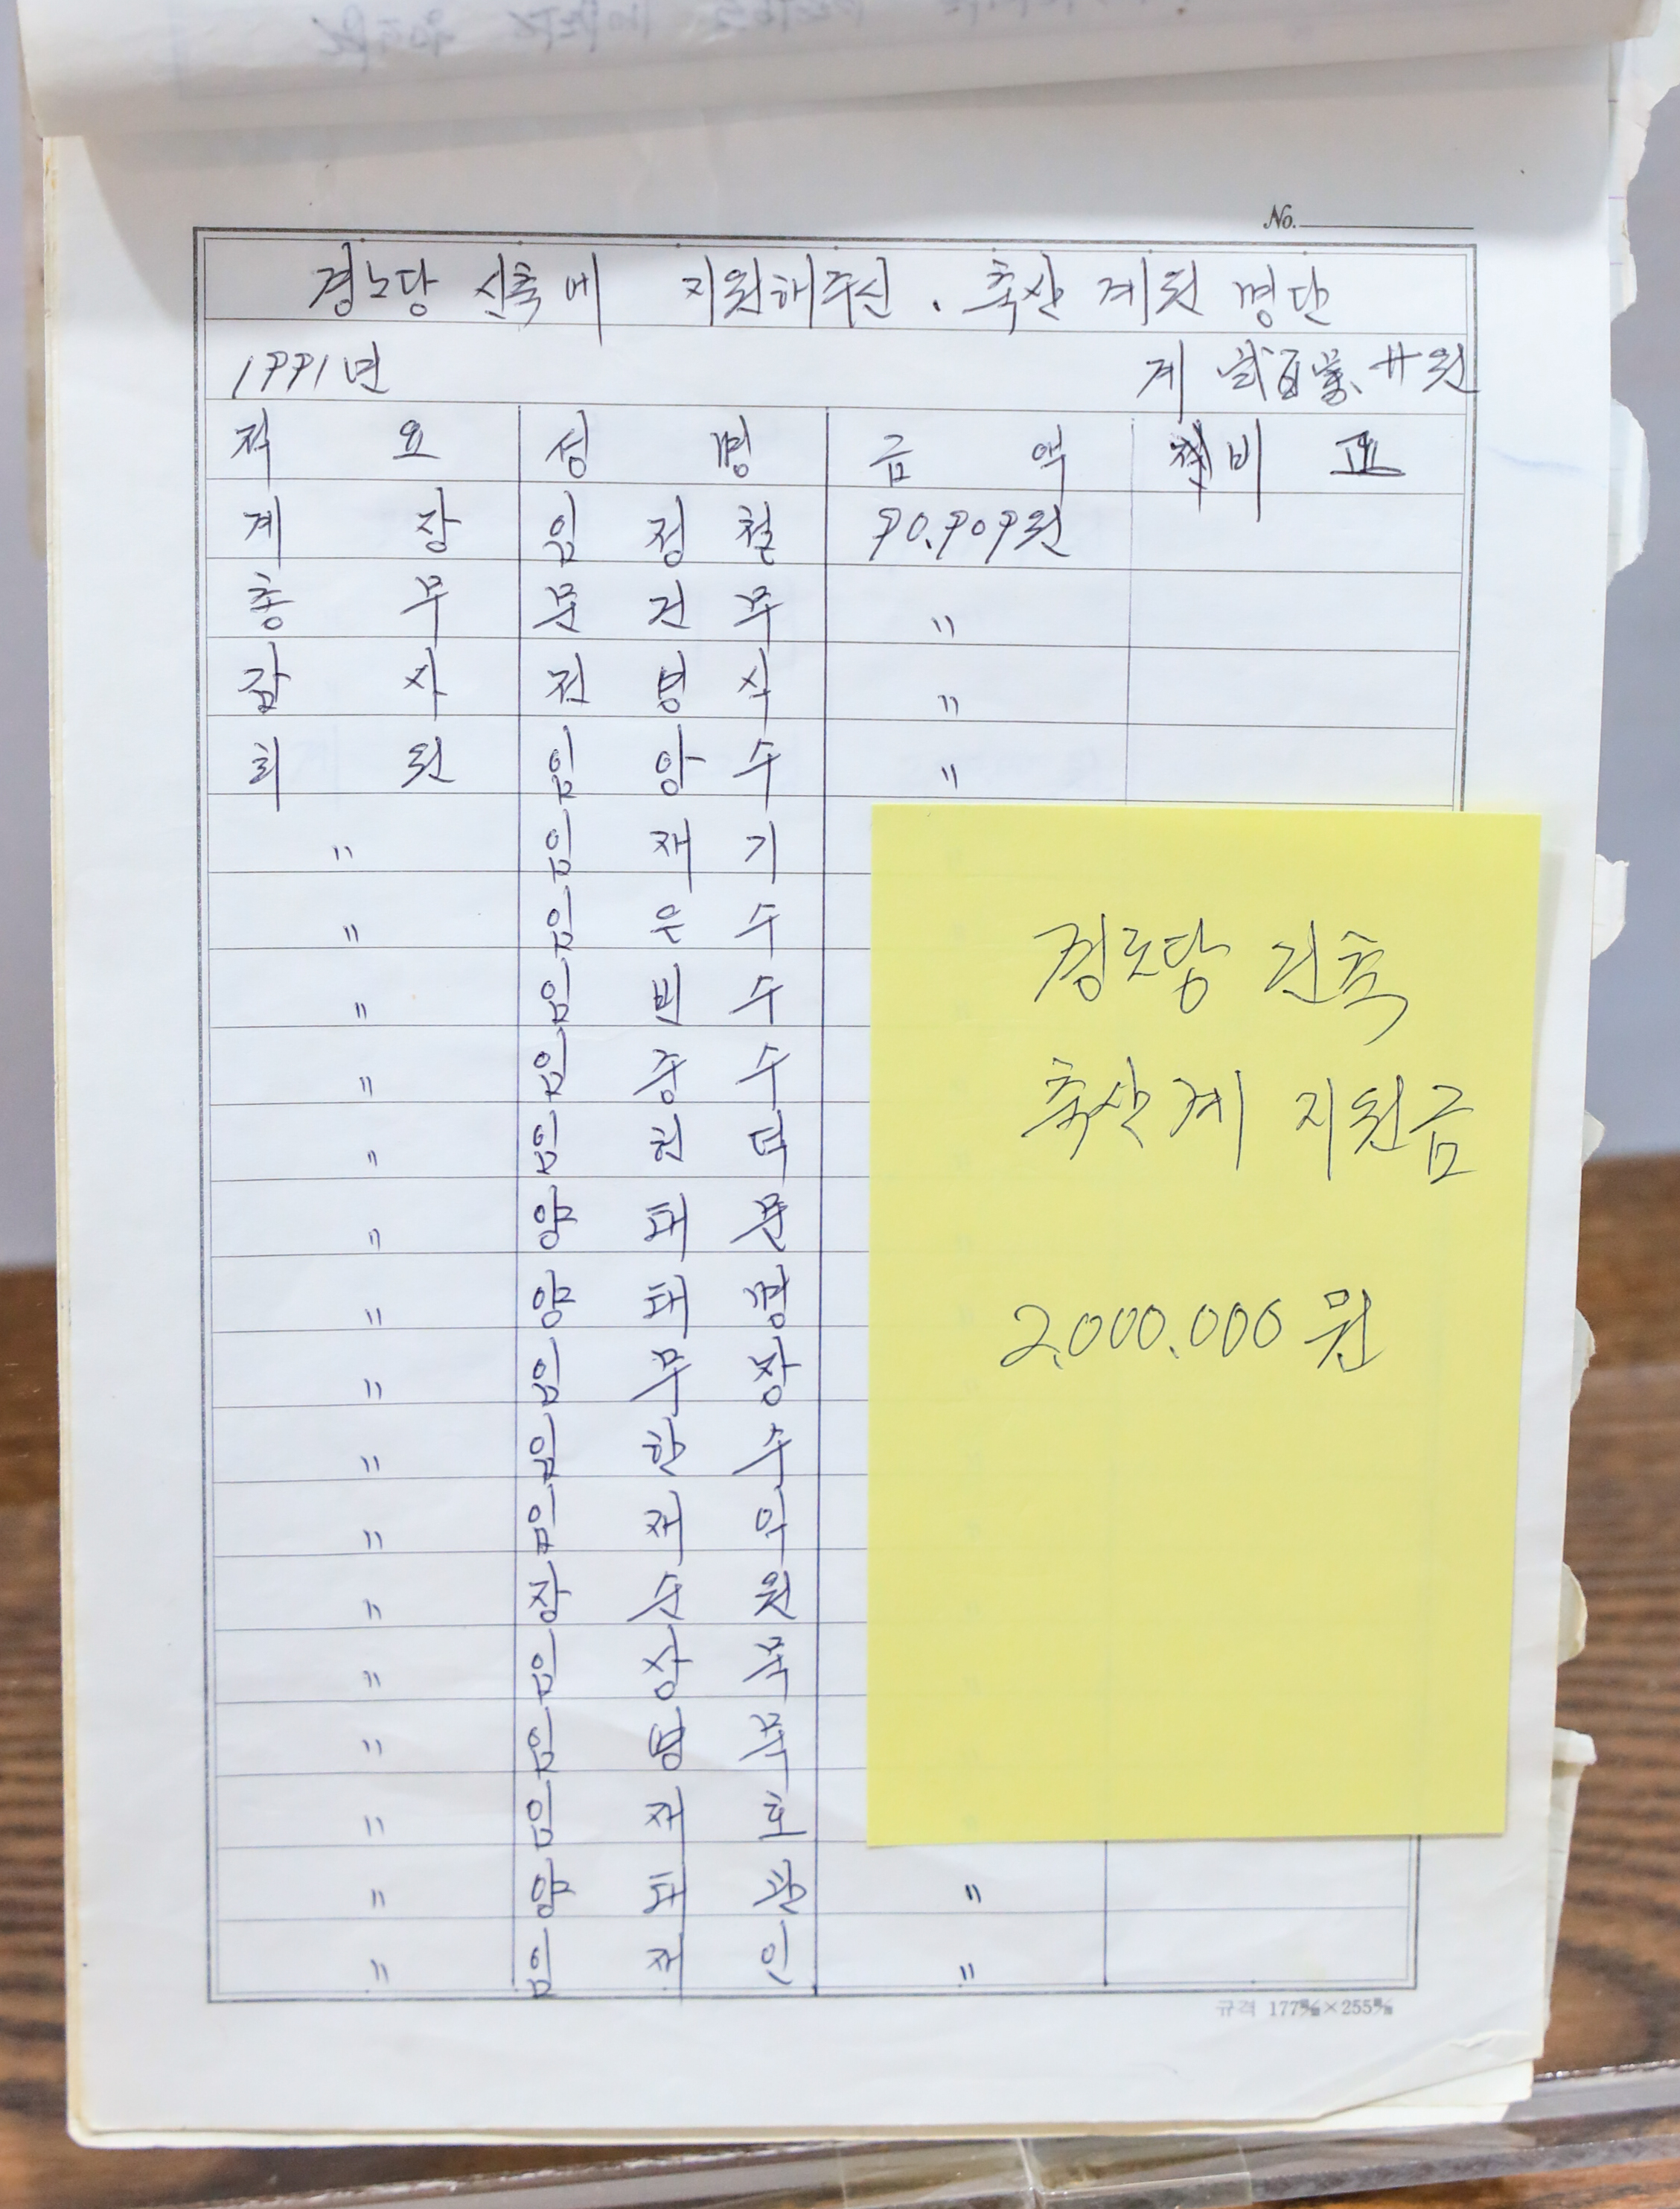 No.
경노당 신축에 지원해주신. 축산 계원 명단
1991년 계 弐百萬.廾원
적 요 성 명 금 액 비 고
계 장 임 정 철 90.909원
총 무 문 건 무 "
감 사 전 병 식 "
회 원 임 양 수 "
" 임 재 기
" 임 우 수
" 임 빈 수
" 임 승 수
" 임 헌 덕
" 양 태 문
" 양 태
" 임 무 장
" 임 학 수
" 임 재 우
" 장 수 원
" 임 상 묵
" 임 병 묵
" 임 재
" 양 태 "
" 임 재 인 "
경로당 건축
축산계 지원금
2.000.000원
규격 177㎜×255㎜